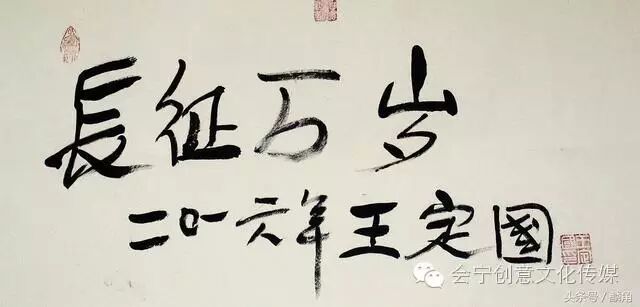 長征万岁
二〇一六年王定國
会宁创意文化传媒
头条号/